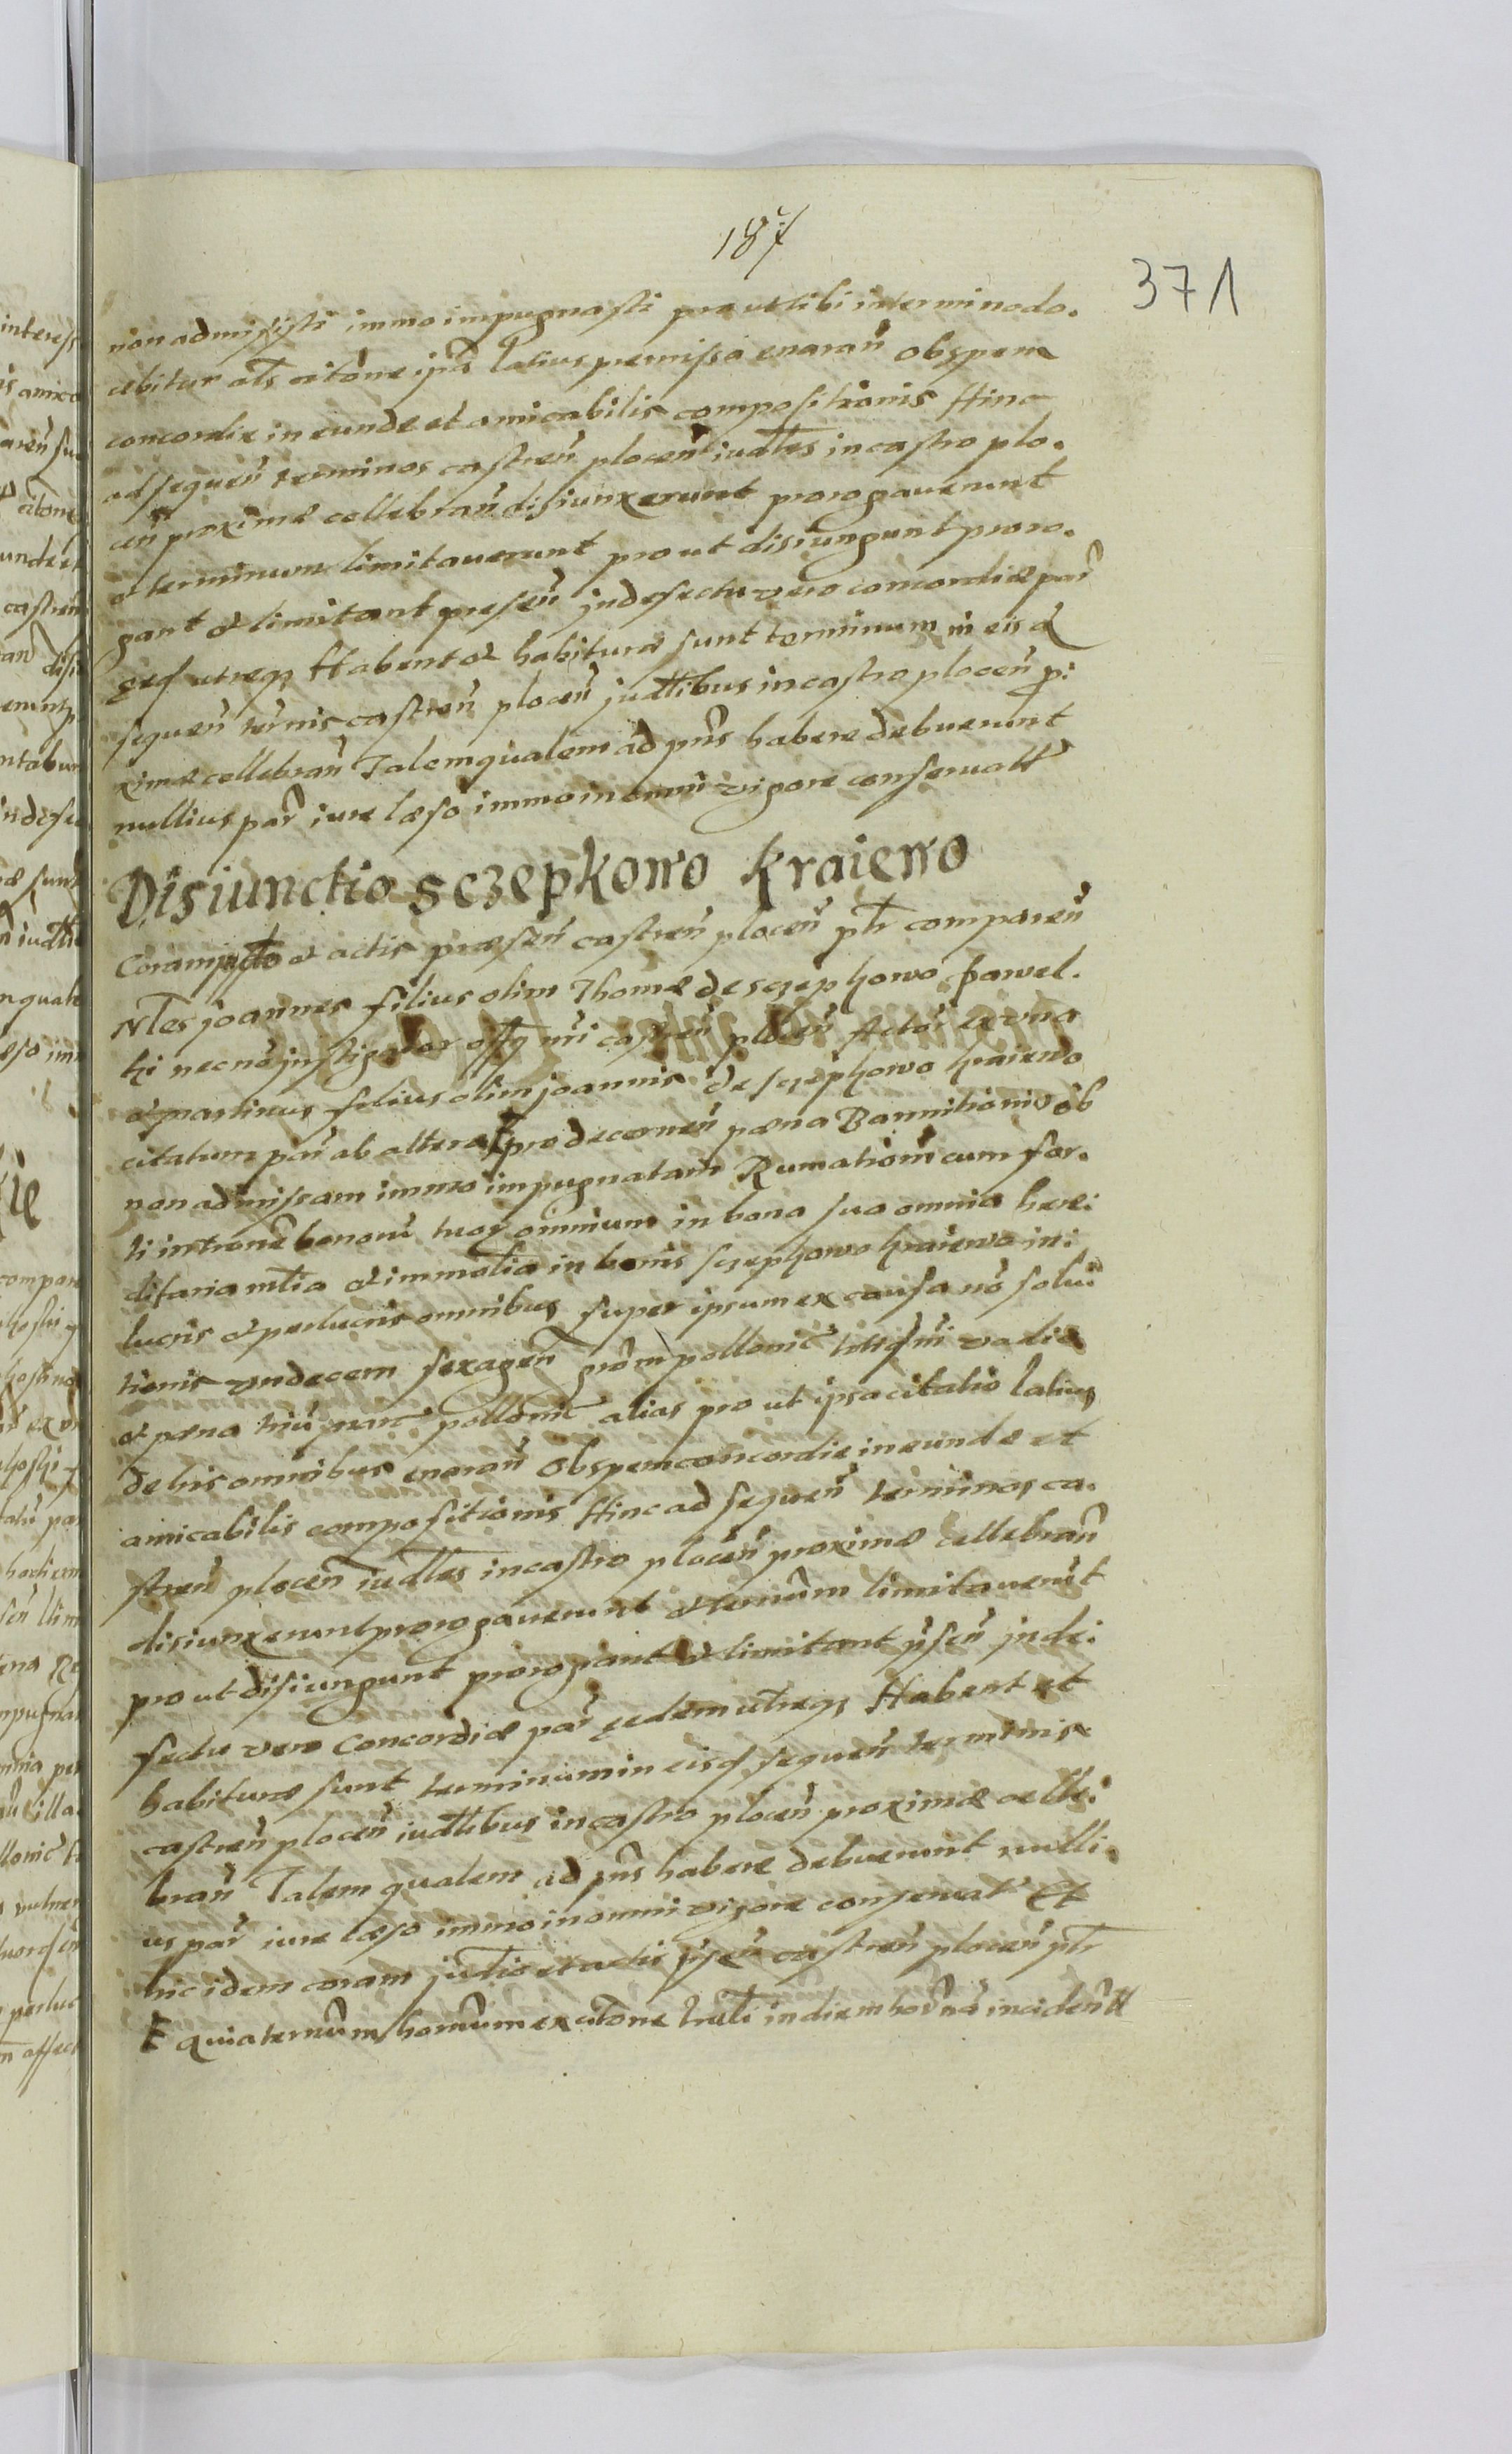 187
371
non admisisti immo impugnasti pro ut tibi in termino do.
cebitur als citōne ipā latius premissa enarañ Ob spem
concordiæ in eundæ et amicabilis compositionis Hinc
ad sequeñ terminos castreñ ploceñ iudles in castro plo.
ceñ proximæ cellebrañ disiunxerunt prorogaverunt
et terminum limitaverunt pro ut disiungunt proro.
gant et limitant preseñ jn defectu vero concordiæ par
ęed utreqz Habent et habituræ sunt terminum in eisd
sequeñ ternis castreñ ploceñ judlibus in castro ploceñ p:
ximæ cellebrañ Talem qualem ad pns habere debuerunt
nullius par iure læso immo in omni vigore conservatt
Disiunctio sczepkowo kraiewo
Coram judo et actis præseñ castreñ ploceñ ptr compareñ
Nles joannes filius olim Thomæ de sczepkowo pawel.
ki necnō jnstigator offy nri castreñ ploceñ Actor ex una
et martinus filius olim joannis de sczepkowo kraiewo
citatum par ab altera F pro decerneñ pæna Bannitionis ob
non admissam immo impugnatam Rumationē cum for.
ti intronē bonorū tuoz omnium in bona sua omnia here:
ditaria mtia et immotia in bonis sczepkowo kraiewo in:
lucris et perlucris omnibus super ipsum ex causa nō solu
tionis undecem sexageñ grōm pollonic totidmi vadii
et pæna triū marc pollonic alias pro ut ipsa citatio latius
de his omnibus enarañ Ob spem concordiæ in eundæ et
amicabilis compositionis Hinc ad sequeñ terminos ca.
streñ ploceñ iudles in castro ploceñ proximæ cellebrañ
disiunxerunt prorogaverunt et ternum limitaverūt
pro ut disiungunt prorogant et limitant pseñ jn de:
fectu vero Concordiæ par ęedem utreqz Habent et
habituræ sunt terminum in eisd sequeñ terminis
castreñ ploceñ iudlibus in castro ploceñ proximæ celle:
brañ Talem qualem ad pns habere debuerunt nulli.
us par iure læso immo in omni vigore conservat Et
hic idem coram judio et actis pseñ castreñ ploceñ ptr
F quia ternum homum ex citōne trali in diem hornā incideñ